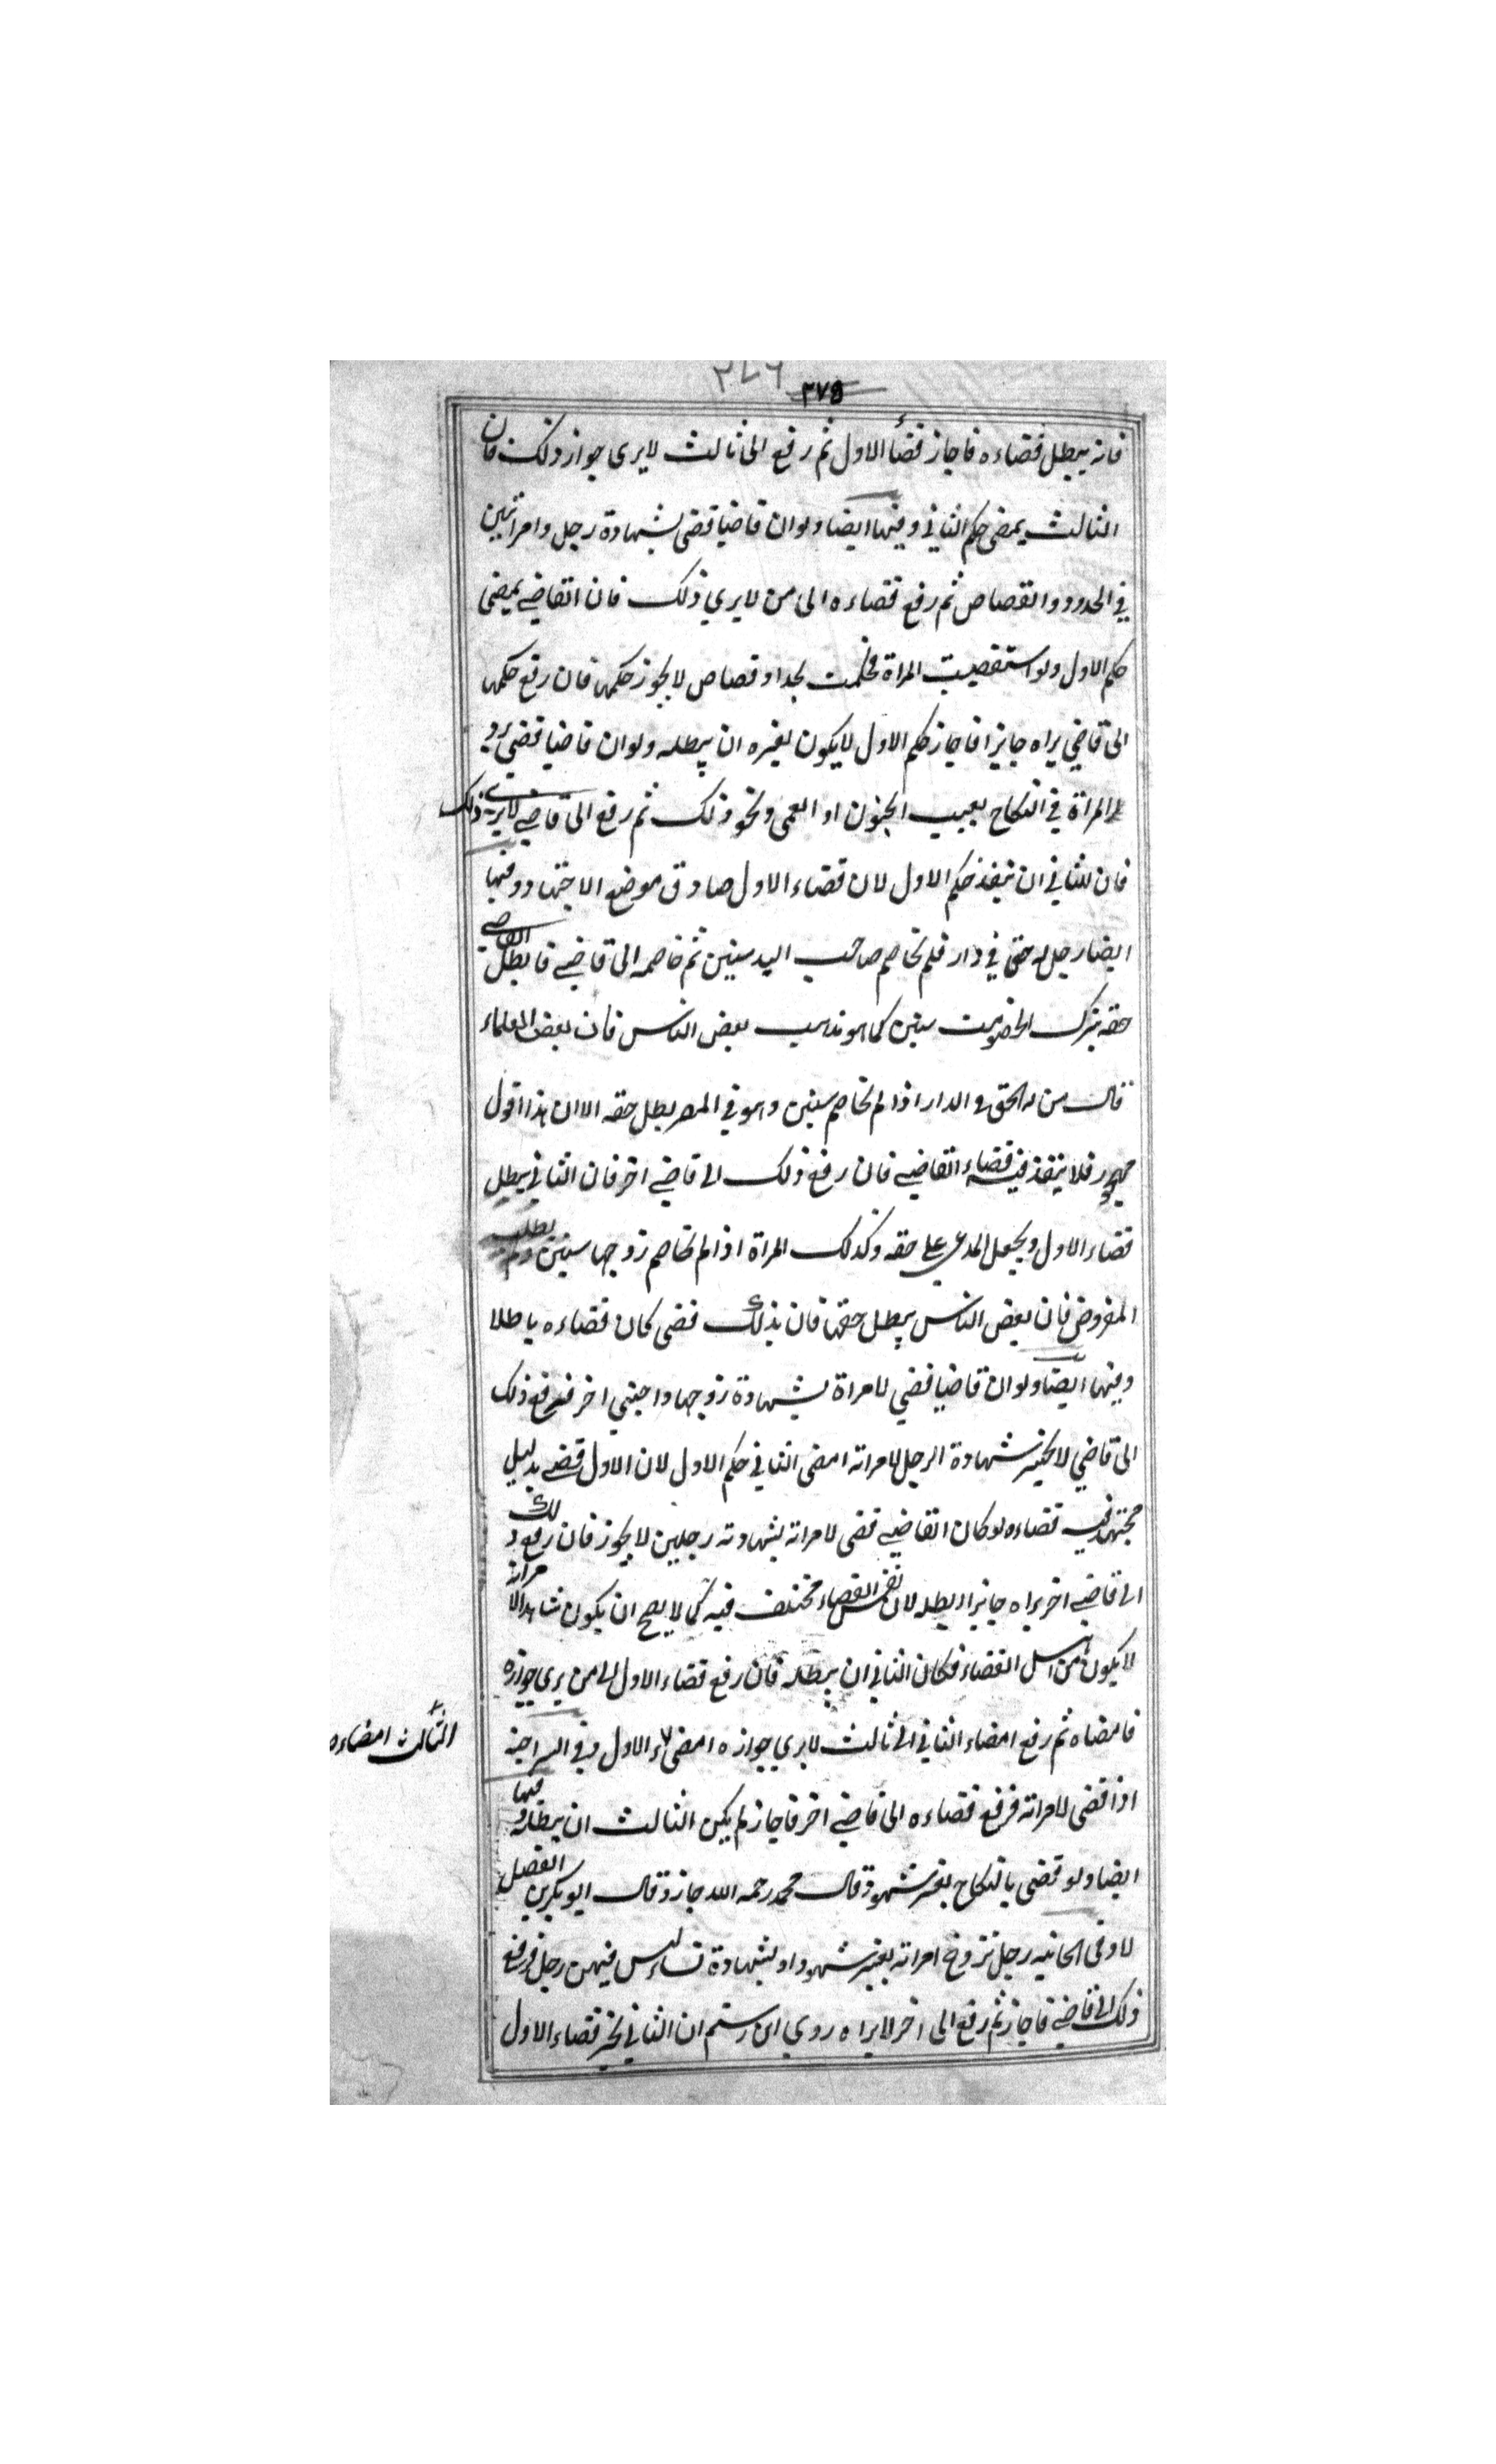 ٣٧٦ ٣٧٥
فانه يبطل قضاءه فاجاز قضأ الاول ثم رفع الى ثالث لا يرى جواز ذلك فان
الثالث يمضى حكم الثاني وفيها ايضا ولوان قاضيا قضى بشهادة رجل وامراتين
في الحدود والقصاص ثم رفع قضاءه الى من لا يرى ذلك فان القاضي يمضى
حكم الاول ولو استقضيت المراة فحكمت بحد او قصاص لا يجوز حكمها فان رفع حكمها
الى قاضي يراه جايزا فاجاز حكم الاول لا يكون لغيره ان يبطله ولوان قاضيا قضى برد
المراة في النكاح بعيب الجنون او العمى ونحو ذلك ثم رفع الى قاضي لا يرى ذلك
فان للثاني ان ينفذ حكم الاول لان قضاء الاول صادق موضع الاجتهاد وفيها
ايضا رجل له حق في دار فلم تخاصم صاحب اليد سنين ثم خاصمه الى قاضي فابطل القاضي
حقه بترك الخصومت سنين كما هو مذهب بعض الناس فان بعض العلماء
قال من له الحق في الدار اذا لم تخاصم سنين وهو في المصر بطل حقه الا ان هذا القول
مهجور فلا ينفذ فيه قضاء القاضي فان رفع ذلك الى قاضي اخر فان الثاني يبطل
قضاء الاول ويجعل المدعي على حقه وكذلك المراة اذا لم تخاصم زوجها سنين ولم بطلب
المفروض فان بعض الناس يبطل حقها فان بذلك قضى كان قضاءه باطلا
وفيها ايضا ولوان قاضيا قضي لامراة بشهادة زوجها واجنبي اخر فرفع ذلك
الى قاضي لا يجيز شهادة الرجل لامراته امضى الثاني حكم الاول لان الاول قضى بدليل
مجتهد فيه قضاءه لو كان القاضي قضى لامراته بشهادته رجلين لا يجوز فان رفع ذلك
الى قاضي اخر يراه جايزا ابطله لان نفس القضاء مختلف فيه كما لا يصح ان يكون شاهدا لامراته
لا يكون من اهل القضاء فكان الثاني ان يبطله فان رفع قضاء الاول الى من يرى جوازه
فامضاه ثم رفع امضاء الثاني الى ثالث لا يرى جوازه امضى الاول وفى السراجية
الثالث امضاءه
اذا قضى لامراته فرفع قضاءه الى قاضي اخر فاجاز لم يكن الثالث ان يبطله وفيها
ايضا ولو قضى بالنكاح بغير شهود قال محمد رحمه الله جاز وقال ابو بكر بن الفضل
لا وفى الخانيه رجل تزوج امراته بغير شهود او بشهادة نساء ليس فيهن رجل فرفع
ذلك الى قاضي فاجاز ثم رفع الى اخر لا يراه روى ابن رستم ان الثاني يجيز قضاء الاول